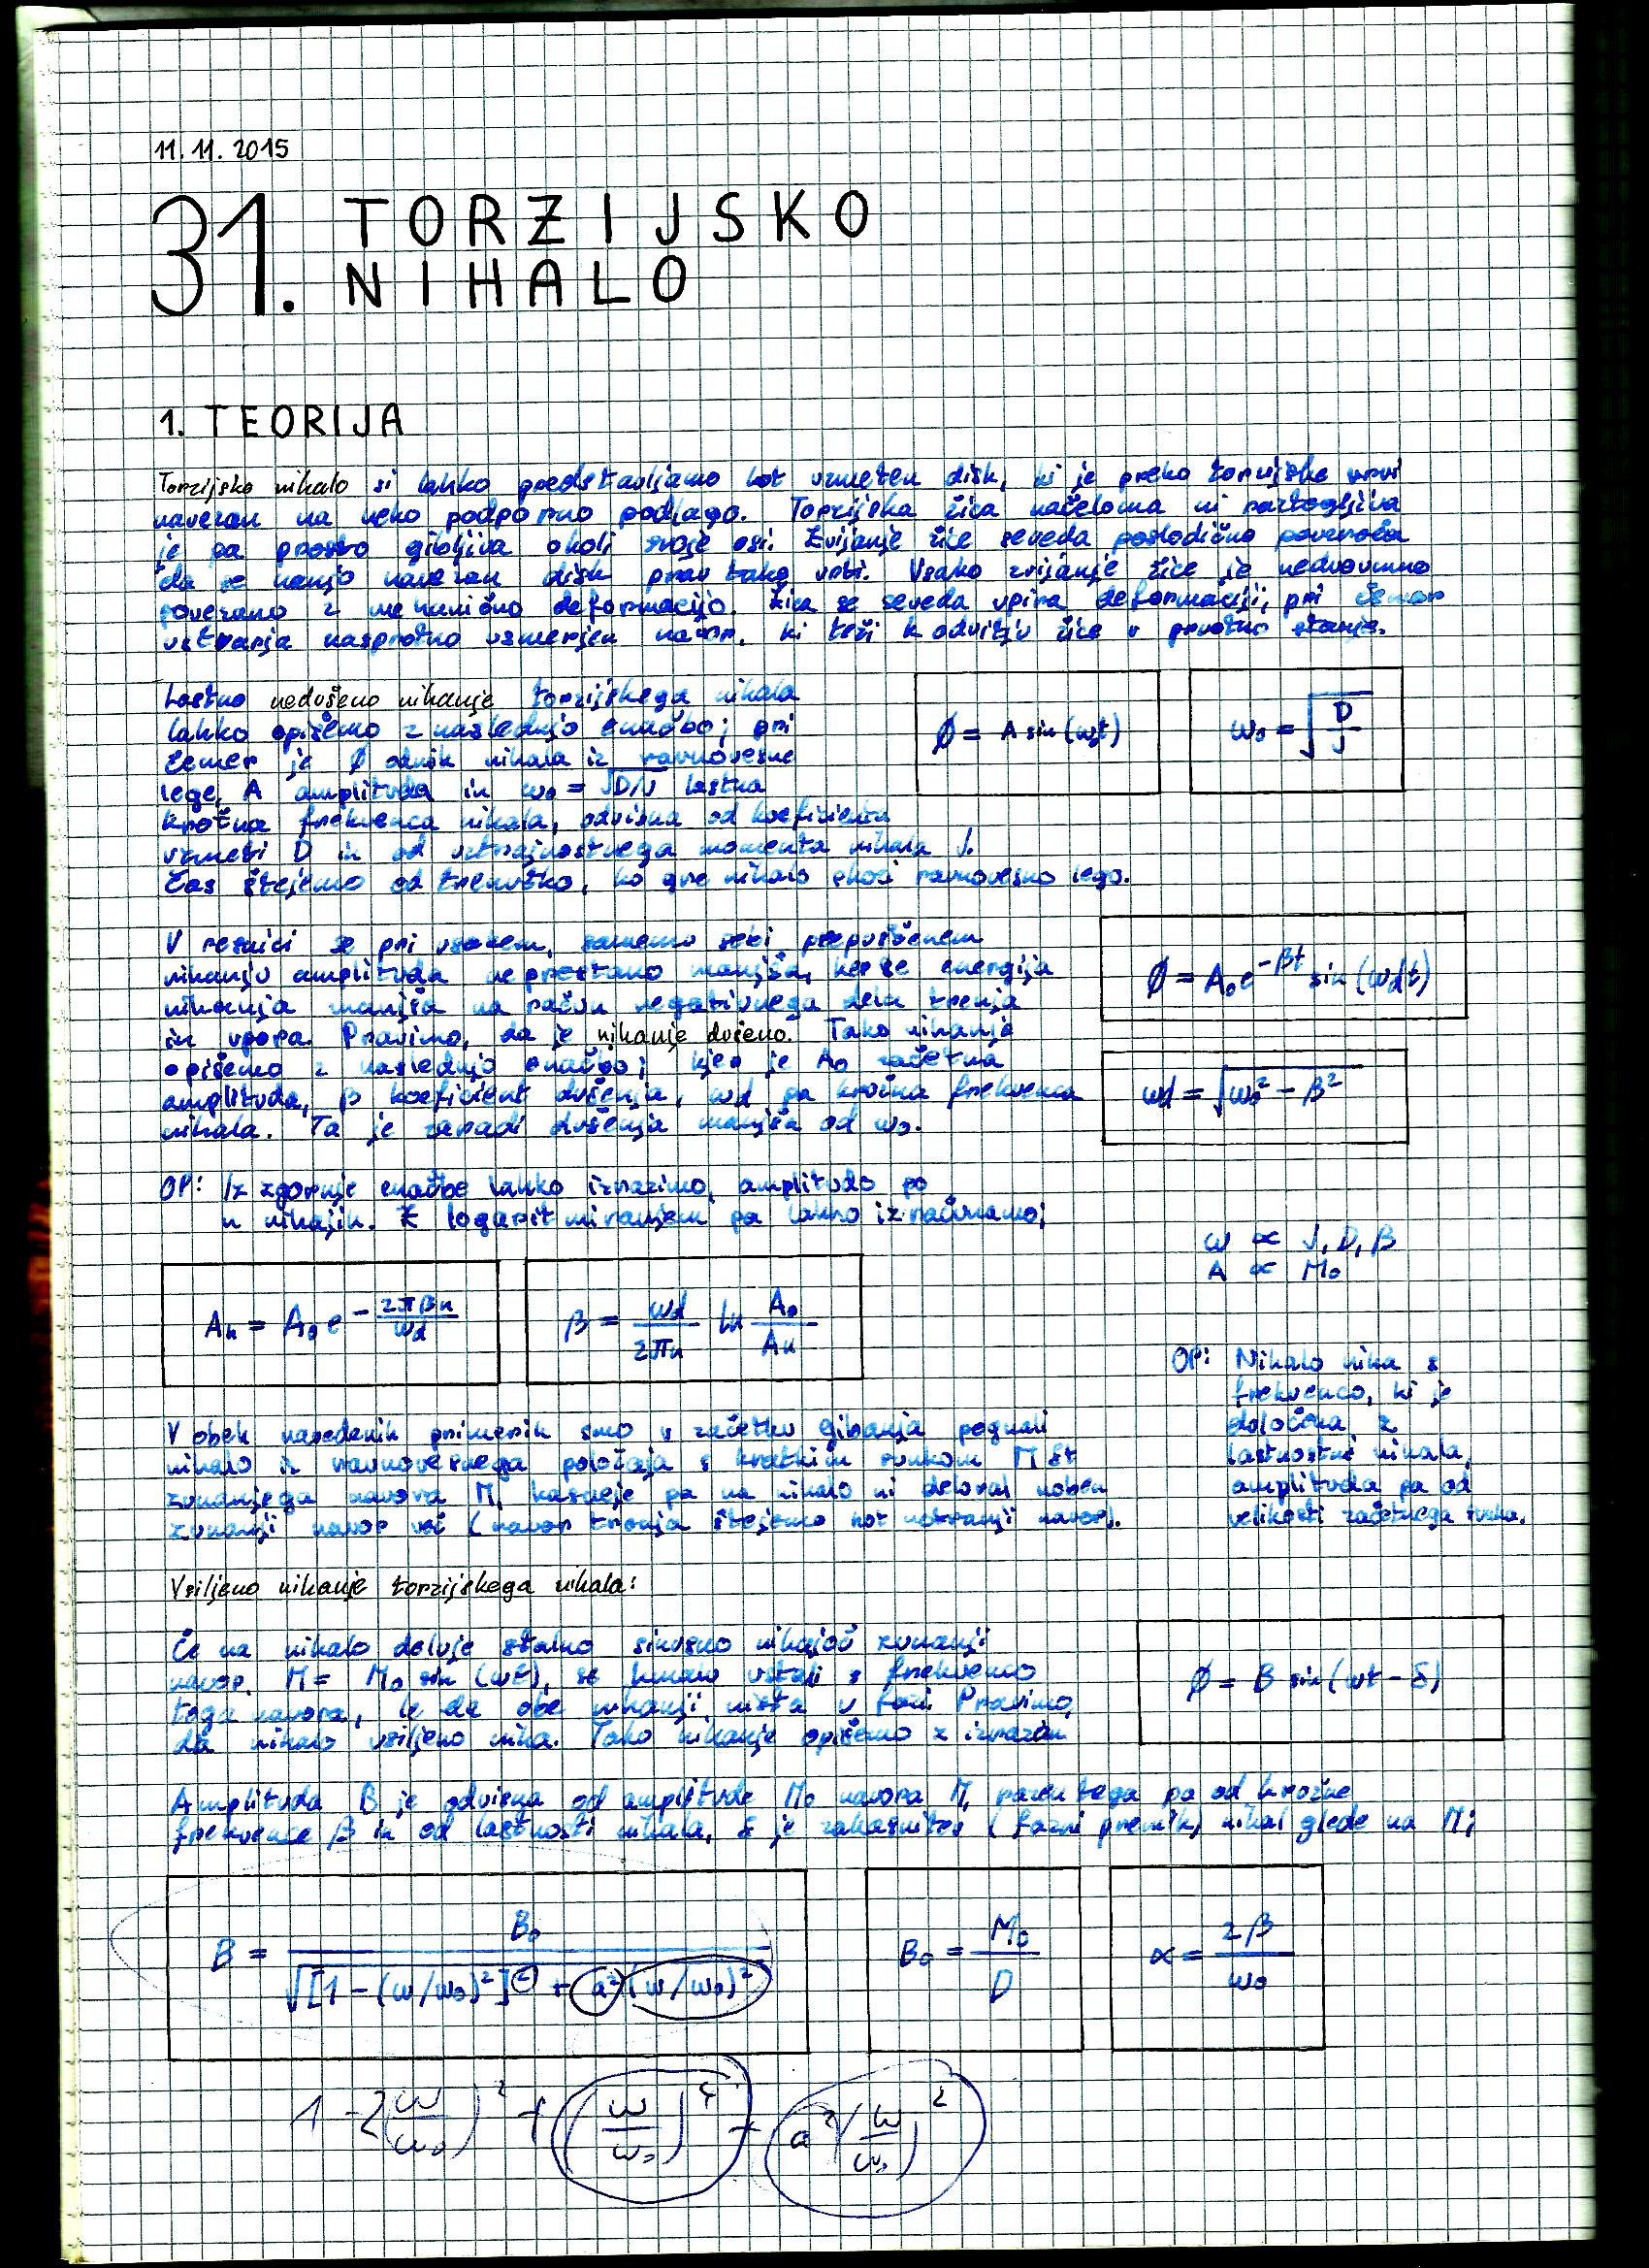 11. 11. 2015
31. TORZIJSKO
NIHALO
1. TEORIJA
Torzijsko nihalo si lahko predstavljamo kot vzmeten disk, ki je preko torzijske vrvi
navezan na neko podporno podlago. Torzijska žica načeloma ni raztegljiva
je pa prosto gibljiva okoli svoje osi. Zvijanje žice seveda posledično povzroča
da se nanjo navezan disk prav tako vrti. Vsako zvijanje žice je nedvoumno
povezano z mehanično deformacijo. Žica se seveda upira deformaciji, pri čemer
ustvarja nasprotno usmerjen navor, ki teži k odvitju žice v prvotno stanje.
Lastno nedušeno nihanje torzijskega nihala
lahko opišemo z naslednjo enačbo; pri
čemer je Ø odmik nihala iz ravnovesne
lege, A amplituda in ω₀ = √D/J lastna
krožna frekvenca nihala, odvisna od koeficienta
vzmeti D in od vztrajnostnega momenta nihala J.
Čas štejemo od trenutko, ko gre nihalo skozi ravnovesno lego.
Ø = A sin(ω₀t)
ω₀ = √(D/J)
V resnici se pri vsakem, samemu sebi prepuščenem
nihanju amplituda neprestano manjša, ker se energija
nihanja manjša na račun negativnega dela trenja
in upora. Pravimo, da je nihanje dušeno. Tako nihanje
opišemo z naslednjo enačbo; kjer je A₀ začetna
amplituda, β koeficient dušenja, ωd pa krožna frekvenca
nihala. Ta je zaradi dušenja manjša od ω₀.
Ø = A₀ e^(-βt) sin(ωdt)
ωd = √(ω₀² - β²)
OP: Iz zgornje enačbe lahko izrazimo, amplitudo po
n nihajih. Z logaritmiranjem pa lahko izračunamo;
ω ∝ J, D, β
A ∝ M₀
An = A₀ e^(-2πβn/ωd)
β = ωd/2πn ln A₀/An
OP: Nihalo niha s
frekvenco, ki je
določena z
lastnostmi nihala,
amplituda pa od
velikosti začetnega sunka.
V obeh navedenih primerih smo v začetku gibanja pognali
nihalo iz ravnovesnega položaja s kratkim sunkom M δt
zunanjega navora M, kasneje pa na nihalo ni deloval noben
zunanji navor več (navor trenja štejemo kot notranji navor).
Vsiljeno nihanje torzijskega nihala:
Če na nihalo deluje stalno sinusno nihajoč zunanji
navor, M = M₀ sin(ωt), se nihalo ustali s frekvenco
tega navora, le da obe nihanji nista v fazi. Pravimo,
da nihalo vsiljeno niha. Tako nihanje opišemo z izrazom
Ø = B sin(ωt - δ)
Amplituda B je odvisna od amplitude M₀ navora M, razen tega pa od krožne
frekvence β in od lastnosti nihala, δ je zakasnitev (fazni premik) nihal glede na M;
B = B₀ / √([1 - (ω/ω₀)²]² + a²(ω/ω₀)²)
B₀ = M₀/D
α = 2β/ω₀
1 - 2(ω/ω₀)² + (ω/ω₀)⁴ + a²(ω/ω₀)²